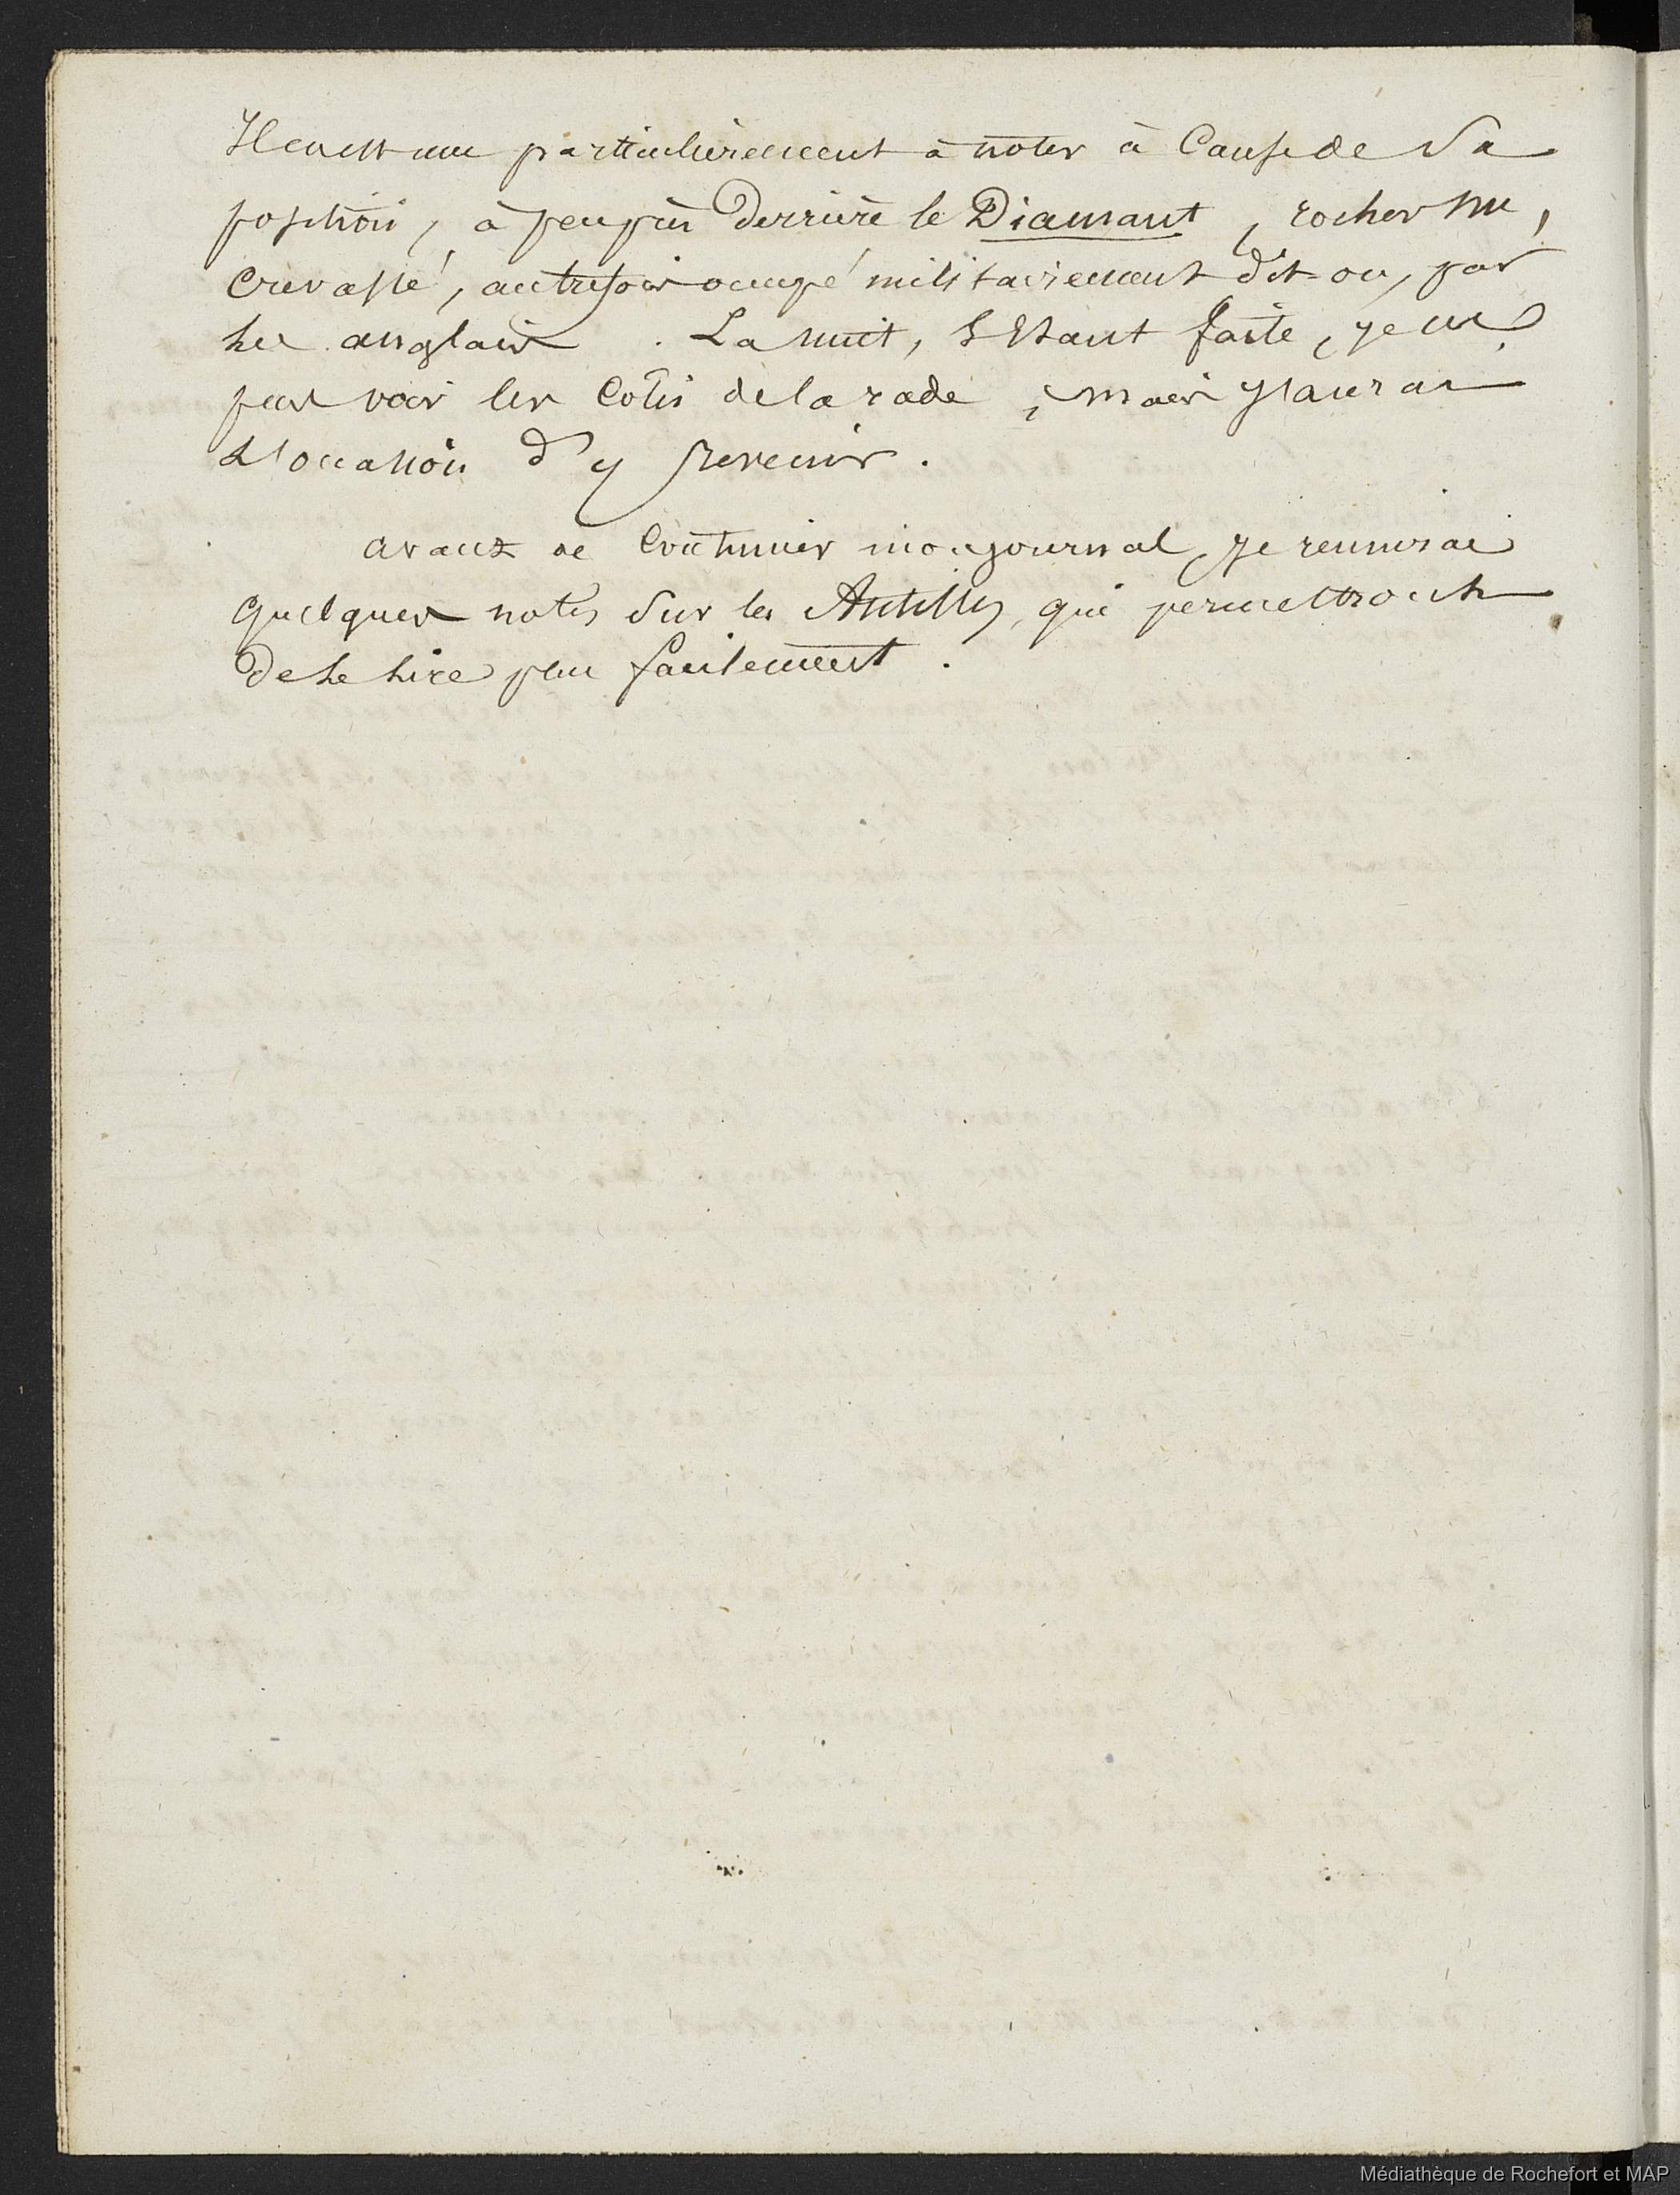 Il en est une particulièrement à noter à Cause de Sa
position, à peu près derrière le Diamant, rocher nu,
Crevassé, autrefois occupé militairement dit-on, par
les anglais. La nuit, s'étant faite, je ne
pus voir les Côtes de la rade, mais j'aurai
L'occasion d'y revenir.
avant de Continuer mon journal, je réunirai
quelques notes Sur les Antilles, qui permettront
de le lire plus facilement.
Médiathèque de Rochefort et MAP